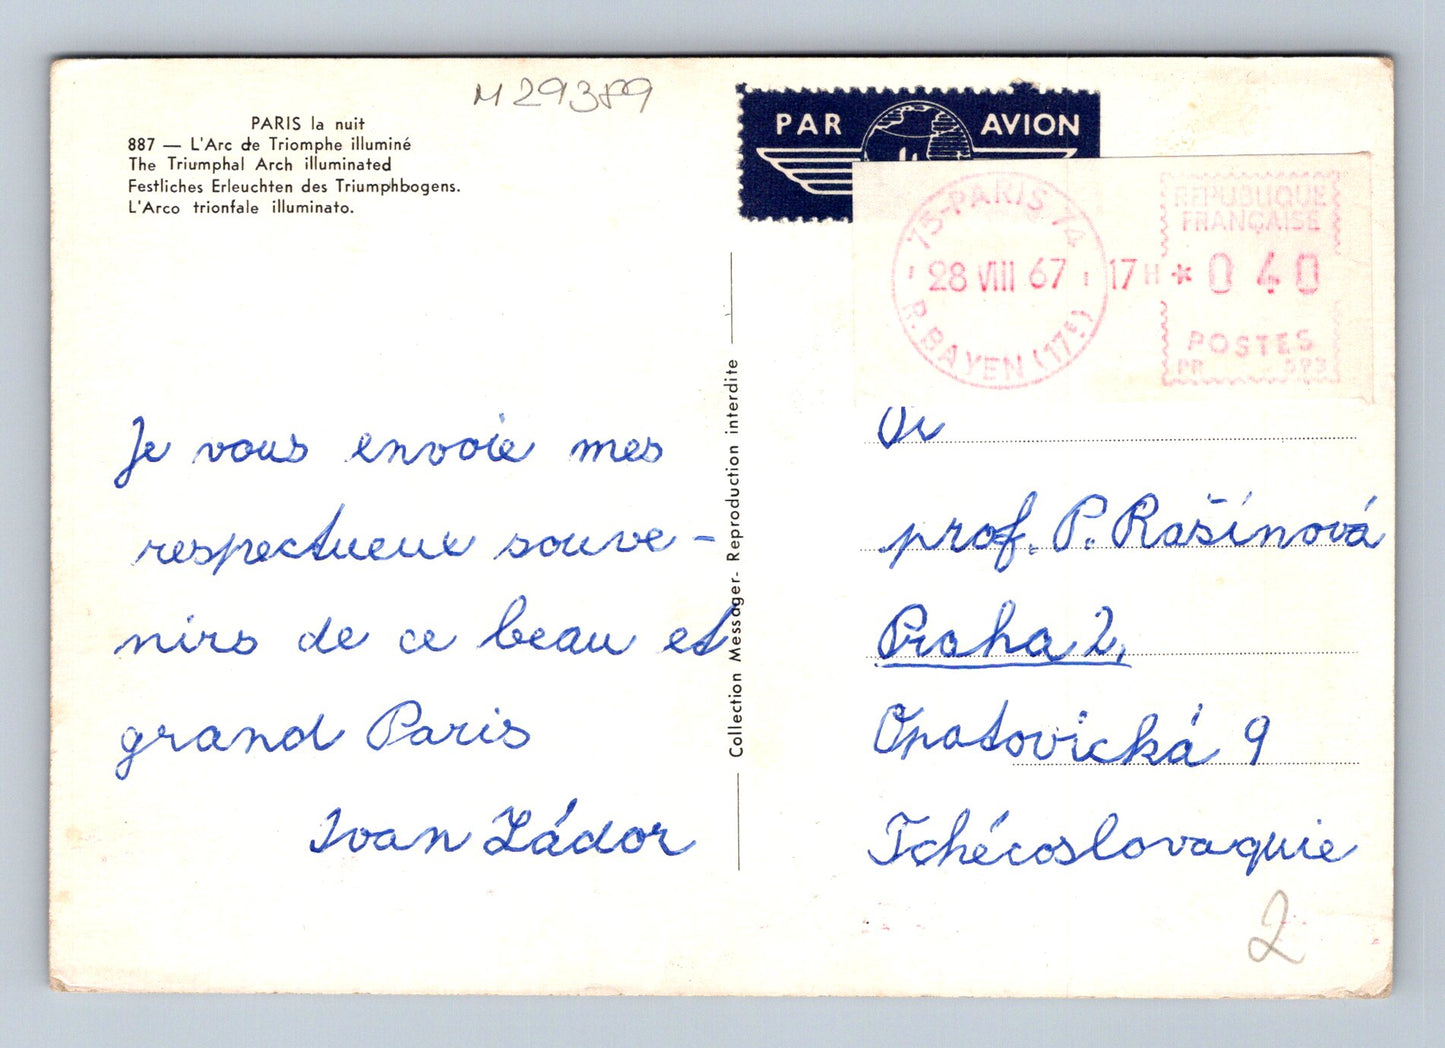 M 29389
PARIS la nuit
887 — L'Arc de Triomphe illuminé
The Triumphal Arch illuminated
Festliches Erleuchten des Triumphbogens.
L'Arco trionfale illuminato.
Je vous envoie mes
respectueux souve-
nirs de ce beau et
grand Paris
Ivan Ládor
Collection Messager - Reproduction interdite
PAR AVION
75-PARIS 74
28 VIII 67 17H
R. BAYEN (17e)
REPUBLIQUE
FRANÇAISE
* 0 40
POSTES
PR 593
Vr
prof. P. Rašínová
Praha 2,
Opatovická 9
Tchécoslovaquie
2